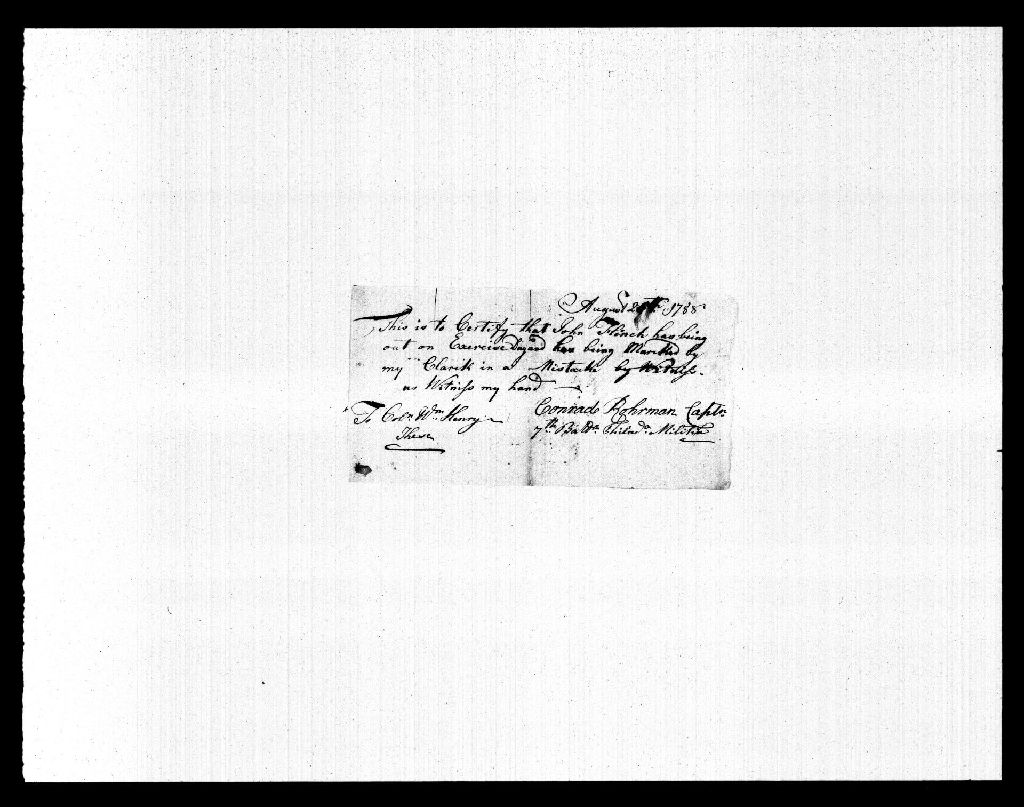 August 2 1788
This is to Certify that John Flinch has being
out on Exercise Days and has being Marcked by
my Clarik in a Mistack by Witniss.
as Witniss my hand
To Colo. Wm. Henry Conrad Rohrman Captn.
These 7th. Batt. Philada. Militia